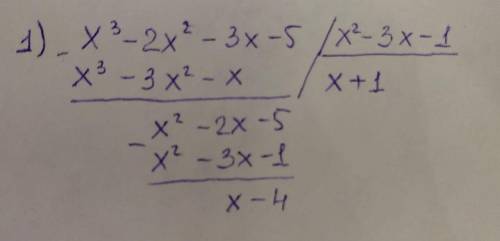 1) - x³ - 2x² - 3x - 5 / x² - 3x - 1
x³ - 3x² - x / x + 1
- x² - 2x - 5
x² - 3x - 1
x - 4